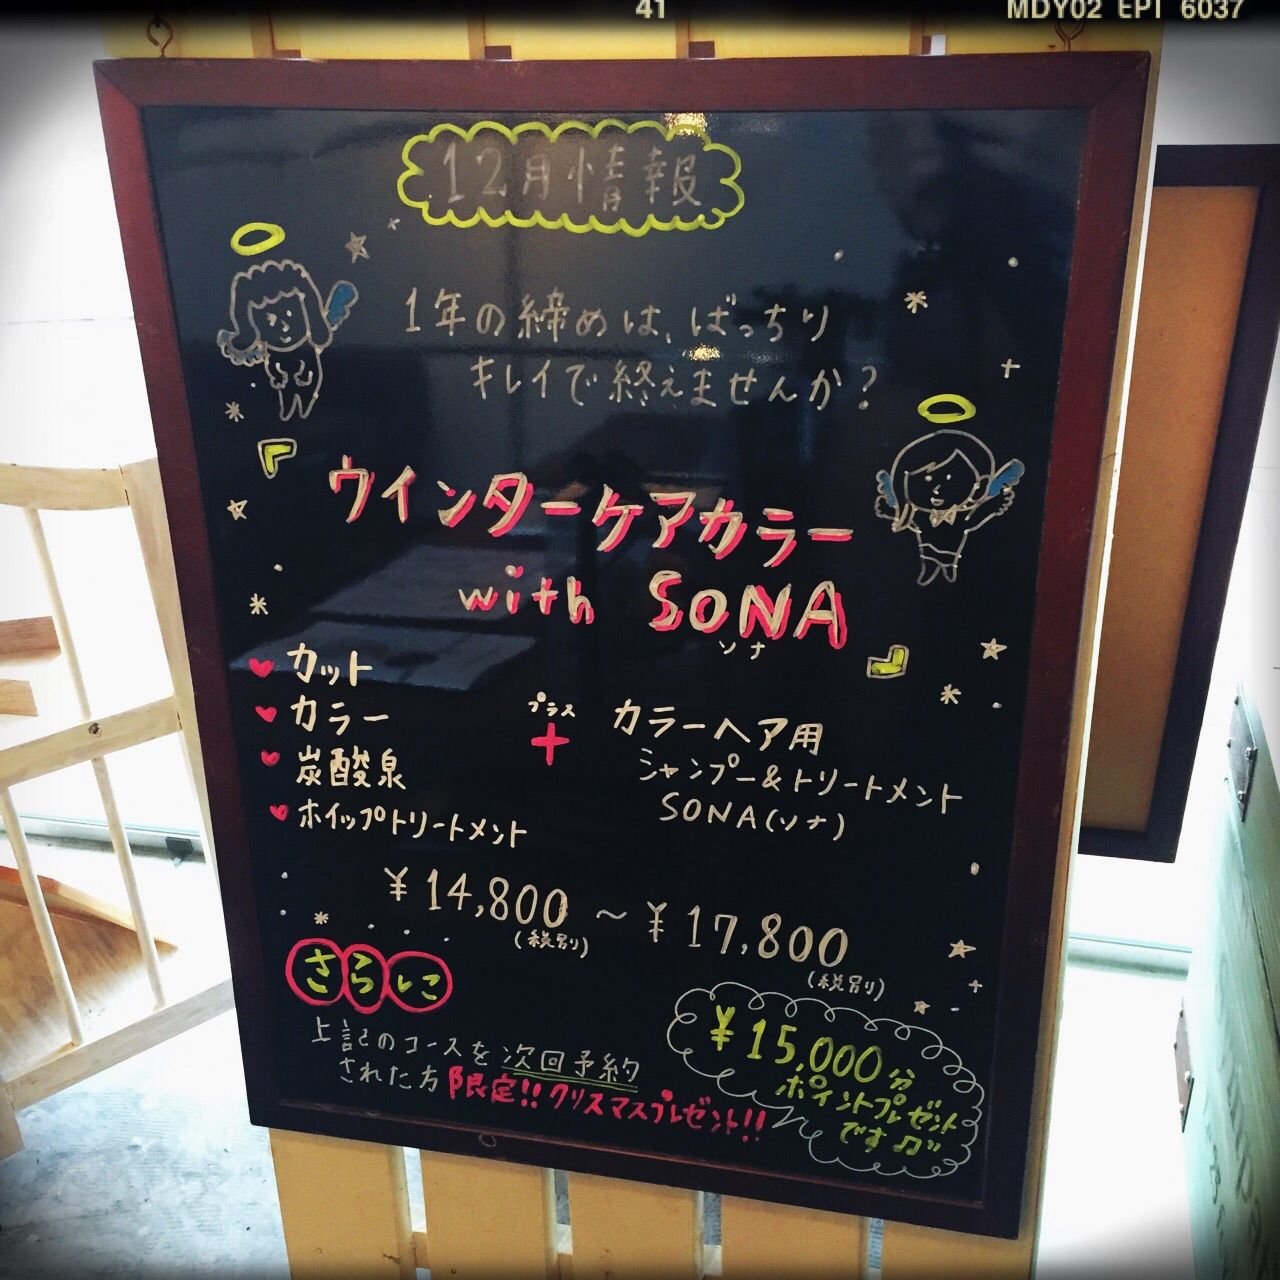 41
MDY02 EPI 6037
12月情報
1年の締めは、ばっちり
キレイで終えませんか?
ウインターケアカラー
with SONA
ソナ
カット
カラー
炭酸泉
ホイップトリートメント
プラス
+
カラーヘア用
シャンプー&トリートメント
SONA(ソナ)
¥14,800 ~ ¥17,800
(税別)
(税別)
さらに
上記のコースを次回予約
された方 限定!!クリスマスプレゼント!!
¥15,000分
ポイントプレゼント
です♫"